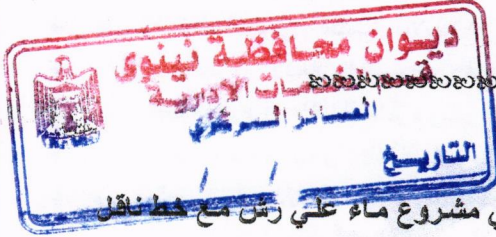 ديوان محافظة نينوى
قسم الخدمات الادارية
الصادر المركزي
التاريخ / /
مشروع ماء علي رش مع خط ناقل